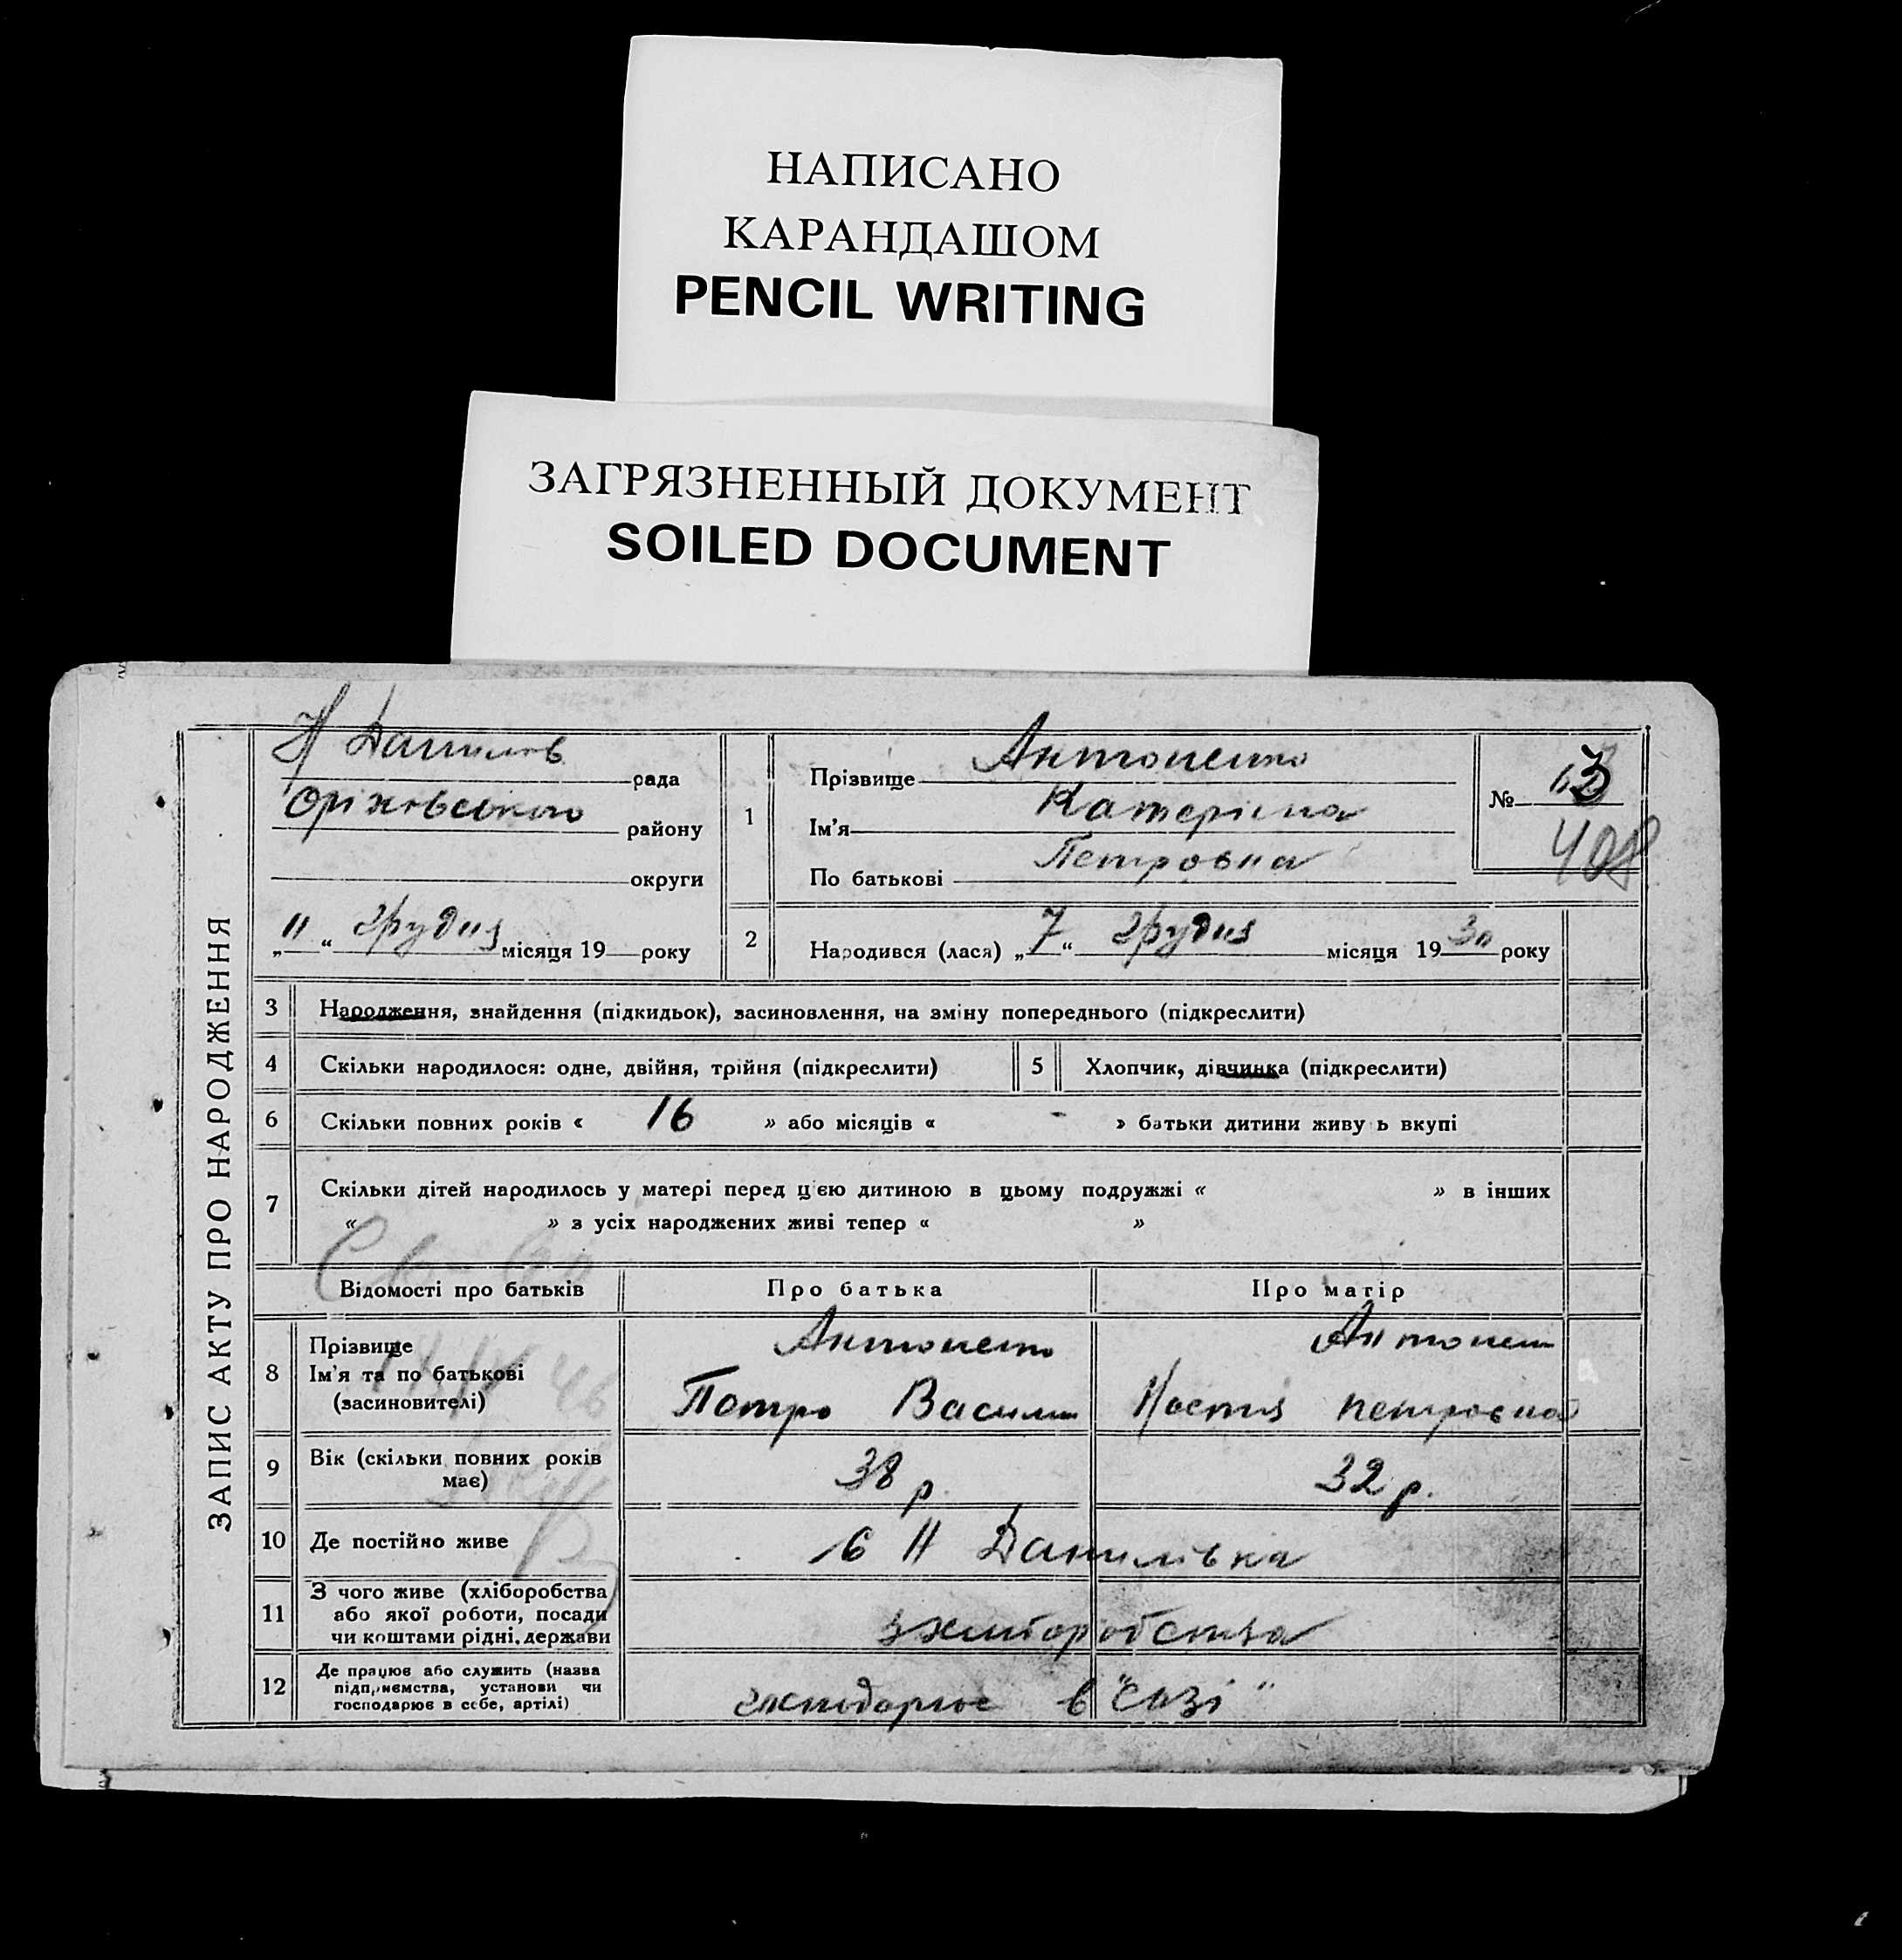 НАПИСАНО
КАРАНДАШОМ
PENCIL WRITING
ЗАГРЯЗНЕННЫЙ ДОКУМЕНТ
SOILED DOCUMENT
ЗАПИС АКТУ ПРО НАРОДЖЕННЯ
Н Данилів рада
Оріхівського району
округи
„11“ грудня місяця 19 року
1 Прізвище Антоненко
Ім'я Катеріна
По батькові Петровна
№ 13
408
2 Народився (лася) „7“ грудня місяця 1930 року
3 Народження, знайдення (підкидьок), засиновлення, на зміну попереднього (підкреслити)
4 Скільки народилося: одне, двійня, трійня (підкреслити) 5 Хлопчик, дівчинка (підкреслити)
6 Скільки повних років « 16 » або місяців « - » батьки дитини живу ь вкупі
7 Скільки дітей народилось у матері перед цією дитиною в цьому подружжі « » в інших
« » з усіх народжених живі тепер « »
Відомості про батьків Про батька Про матір
8 Прізвище Антоненко Антонен
Ім'я та по батькові
(засновителі) Петро Васил Настя петровна
9 Вік (скільки повних років
має) 38 р. 32 р.
10 Де постійно живе с Н Данилівка
11 З чого живе (хліборобства
або якої роботи, посади
чи коштами рідні, держави
з хліборобства
12 Де працює або служить (назва
підприємства, установи чи
господарює в себе, артілі)
господарює в "Созі"